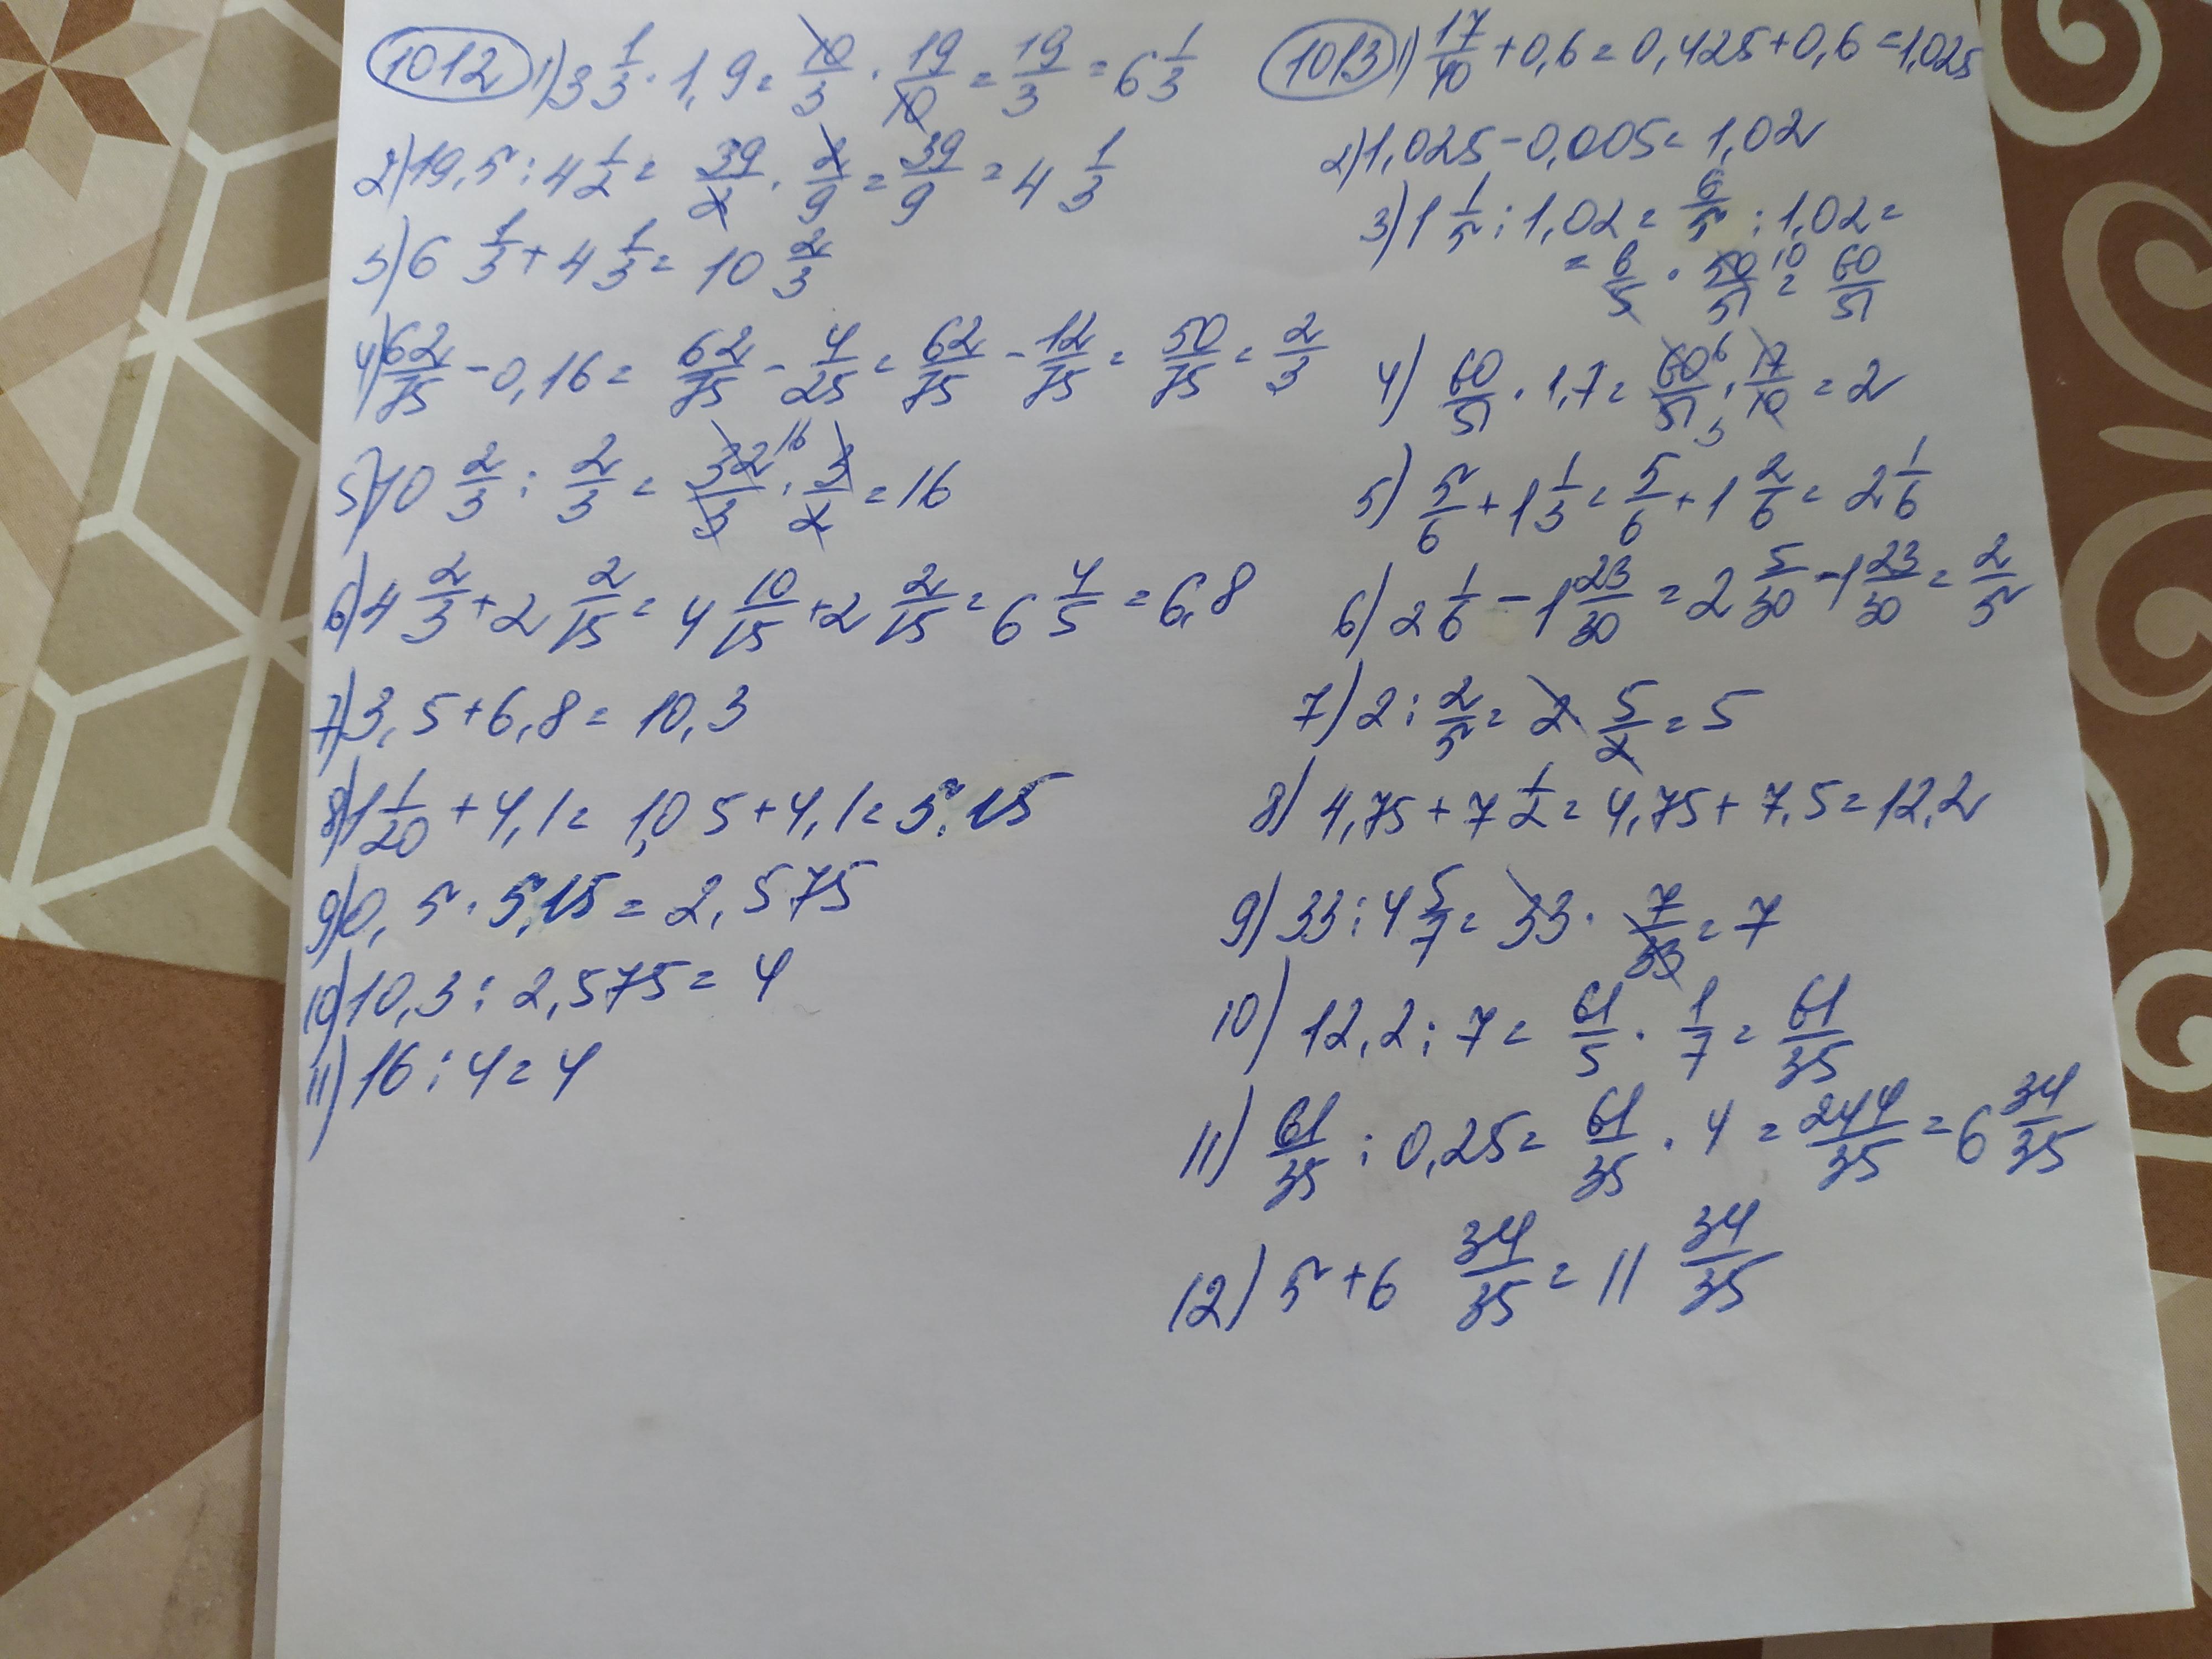 1012 1) 3 1/3 · 1,9 = 10/3 · 19/10 = 19/3 = 6 1/3
2) 19,5 : 4 1/2 = 39/2 · 2/9 = 39/9 = 4 1/3
3) 6 1/3 + 4 1/3 = 10 2/3
4) 62/75 - 0,16 = 62/75 - 4/25 = 62/75 - 12/75 = 50/75 = 2/3
5) 10 2/3 : 2/3 = 32/3 16 · 3/2 = 16
6) 4 2/3 + 2 2/15 = 4 10/15 + 2 2/15 = 6 4/5 = 6,8
7) 3,5 + 6,8 = 10,3
8) 1 1/20 + 4,1 = 1,05 + 4,1 = 5,15
9) 0,5 · 5,15 = 2,575
10) 10,3 : 2,575 = 4
11) 16 : 4 = 4
1013 1) 17/40 + 0,6 = 0,425 + 0,6 = 1,025
2) 1,025 - 0,005 = 1,02
3) 1 1/5 : 1,02 = 6/5 : 1,02 =
= 6/5 · 50/51 10 = 60/51
4) 60/51 · 1,7 = 60/51 6 3 · 17/10 = 2
5) 5/6 + 1 1/3 = 5/6 + 1 2/6 = 2 1/6
6) 2 1/6 - 1 23/30 = 2 5/30 - 1 23/30 = 2/5
7) 2 : 2/5 = 2 5/2 = 5
8) 4,75 + 7 1/2 = 4,75 + 7,5 = 12,2
9) 33 : 4 5/7 = 33 · 7/33 = 7
10) 12,2 : 7 = 61/5 · 1/7 = 61/35
11) 61/35 : 0,25 = 61/35 · 4 = 244/35 = 6 34/35
12) 5 + 6 34/35 = 11 34/35